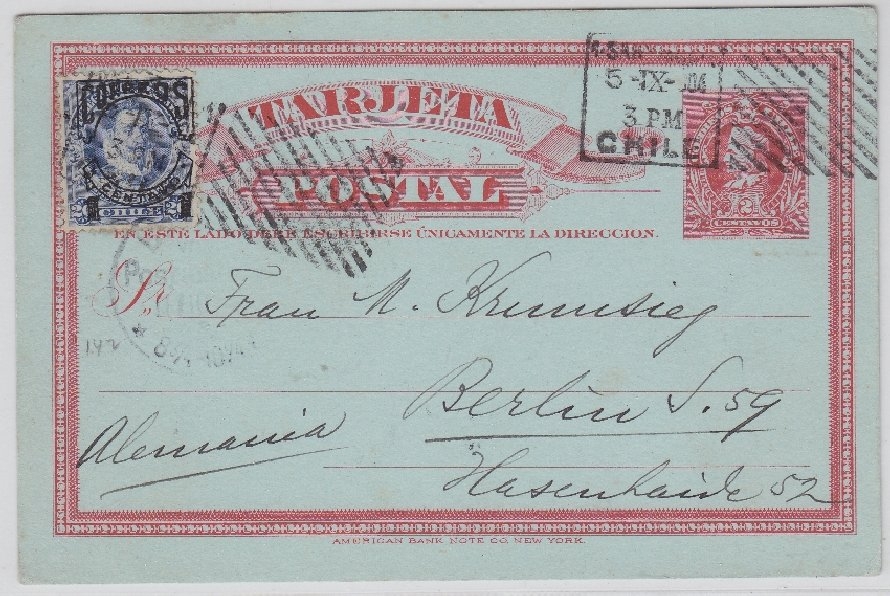 TARJETA
POSTAL
EN ESTE LADO DEBE ESCRIBIRSE ÚNICAMENTE LA DIRECCION.
CORREOS
CHILE
5-IX-04
3 PM
CHILE
2
CENTAVOS
Sr.
Frau M. Krumsieg
Berlin S. 59
Alemania
Hasenhaide 52
142
AMERICAN BANK NOTE CO. NEW YORK.